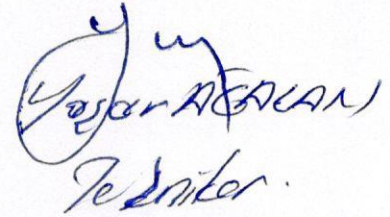 Yaşar AĞAÇAN
Tekniker.